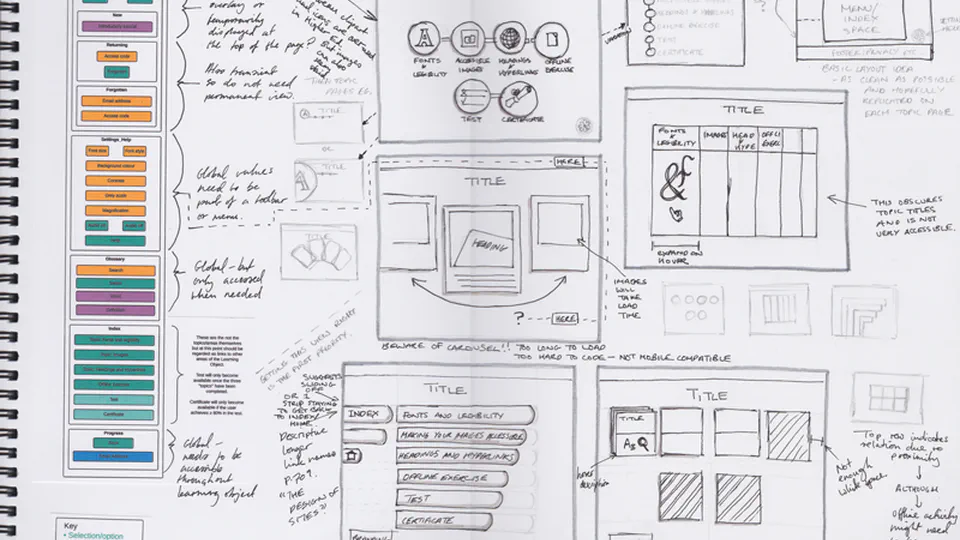 New
Returning
Access code
Forgotten
Email address
Access code
Settings_Help
Font size
Font style
Background colour
Contrast
Grey scale
Magnification
Help
Glossary
Search
Index
Test
Certificate
Progress
Key
• Selection/option
overlay or
temporarily
displayed at
the top of the page?
Also transient
so do not need
permanent view.
Global values
need to be
part of a toolbar
or menu.
Global - but
only accessed
when needed
These are the not the
topics/areas themselves
but at this point should be
regarded as links to other
areas of the Learning
Object.
Test will only become
available once the three
"topics" have been
completed.
Certificate will only become
available if the user
achieves a 80% in the test.
Global -
needs to be
accessible
throughout
learning object
THEN TOPIC
PAGES EG.
TITLE
OR
TITLE
TITLE
FONTS
&
LEGIBILITY
ACCESSIBLE
IMAGES
HEADINGS
&
HYPERLINKS
OFFLINE
EXERCISE
TEST
CERTIFICATE
HERE
TITLE
HEADING
? HERE
IMAGES
WILL
TAKE
LOAD
TIME
BEWARE OF CAROUSEL!! TOO LONG TO LOAD
TOO HARD TO CODE - NOT MOBILE COMPATIBLE
GETTING THIS VIEW RIGHT
IS THE FIRST PRIORITY.
SUGGESTS
SLIDING
OFF
OR 1
STRIP STAYING
TO GET BACK
TO INDEX/
HOME.
Descriptive
longer
link names
P.709.
"THE
DESIGN OF
SITES"
TITLE
INDEX
FONTS AND LEGIBILITY
MAKING YOUR IMAGES ACCESSIBLE
HEADINGS AND HYPERLINKS
OFFLINE EXERCISE
TEST
CERTIFICATE
BRANDING
HEADINGS & HYPERLINKS
OFFLINE EXERCISE
TEST
CERTIFICATE
MENU/
INDEX
SPACE
FOOTER: PRIVACY ETC
BASIC LAYOUT IDEA
- AS CLEAN AS POSSIBLE
AND HOPEFULLY
REPLICATED ON
EACH TOPIC PAGE.
TITLE
FONTS
&
LEGIBILITY
IMAGES
HEAD
&
HYPE
OFFLI
EXERC
&f
EXPAND ON
HOVER
THIS OBSCURES
TOPIC TITLES
AND IS NOT
VERY ACCESSIBLE.
TITLE
TITLE
Aa
Not
enough
white space
Top row indicates
relation due to
proximity
ALTHOUGH
offline activity
might need